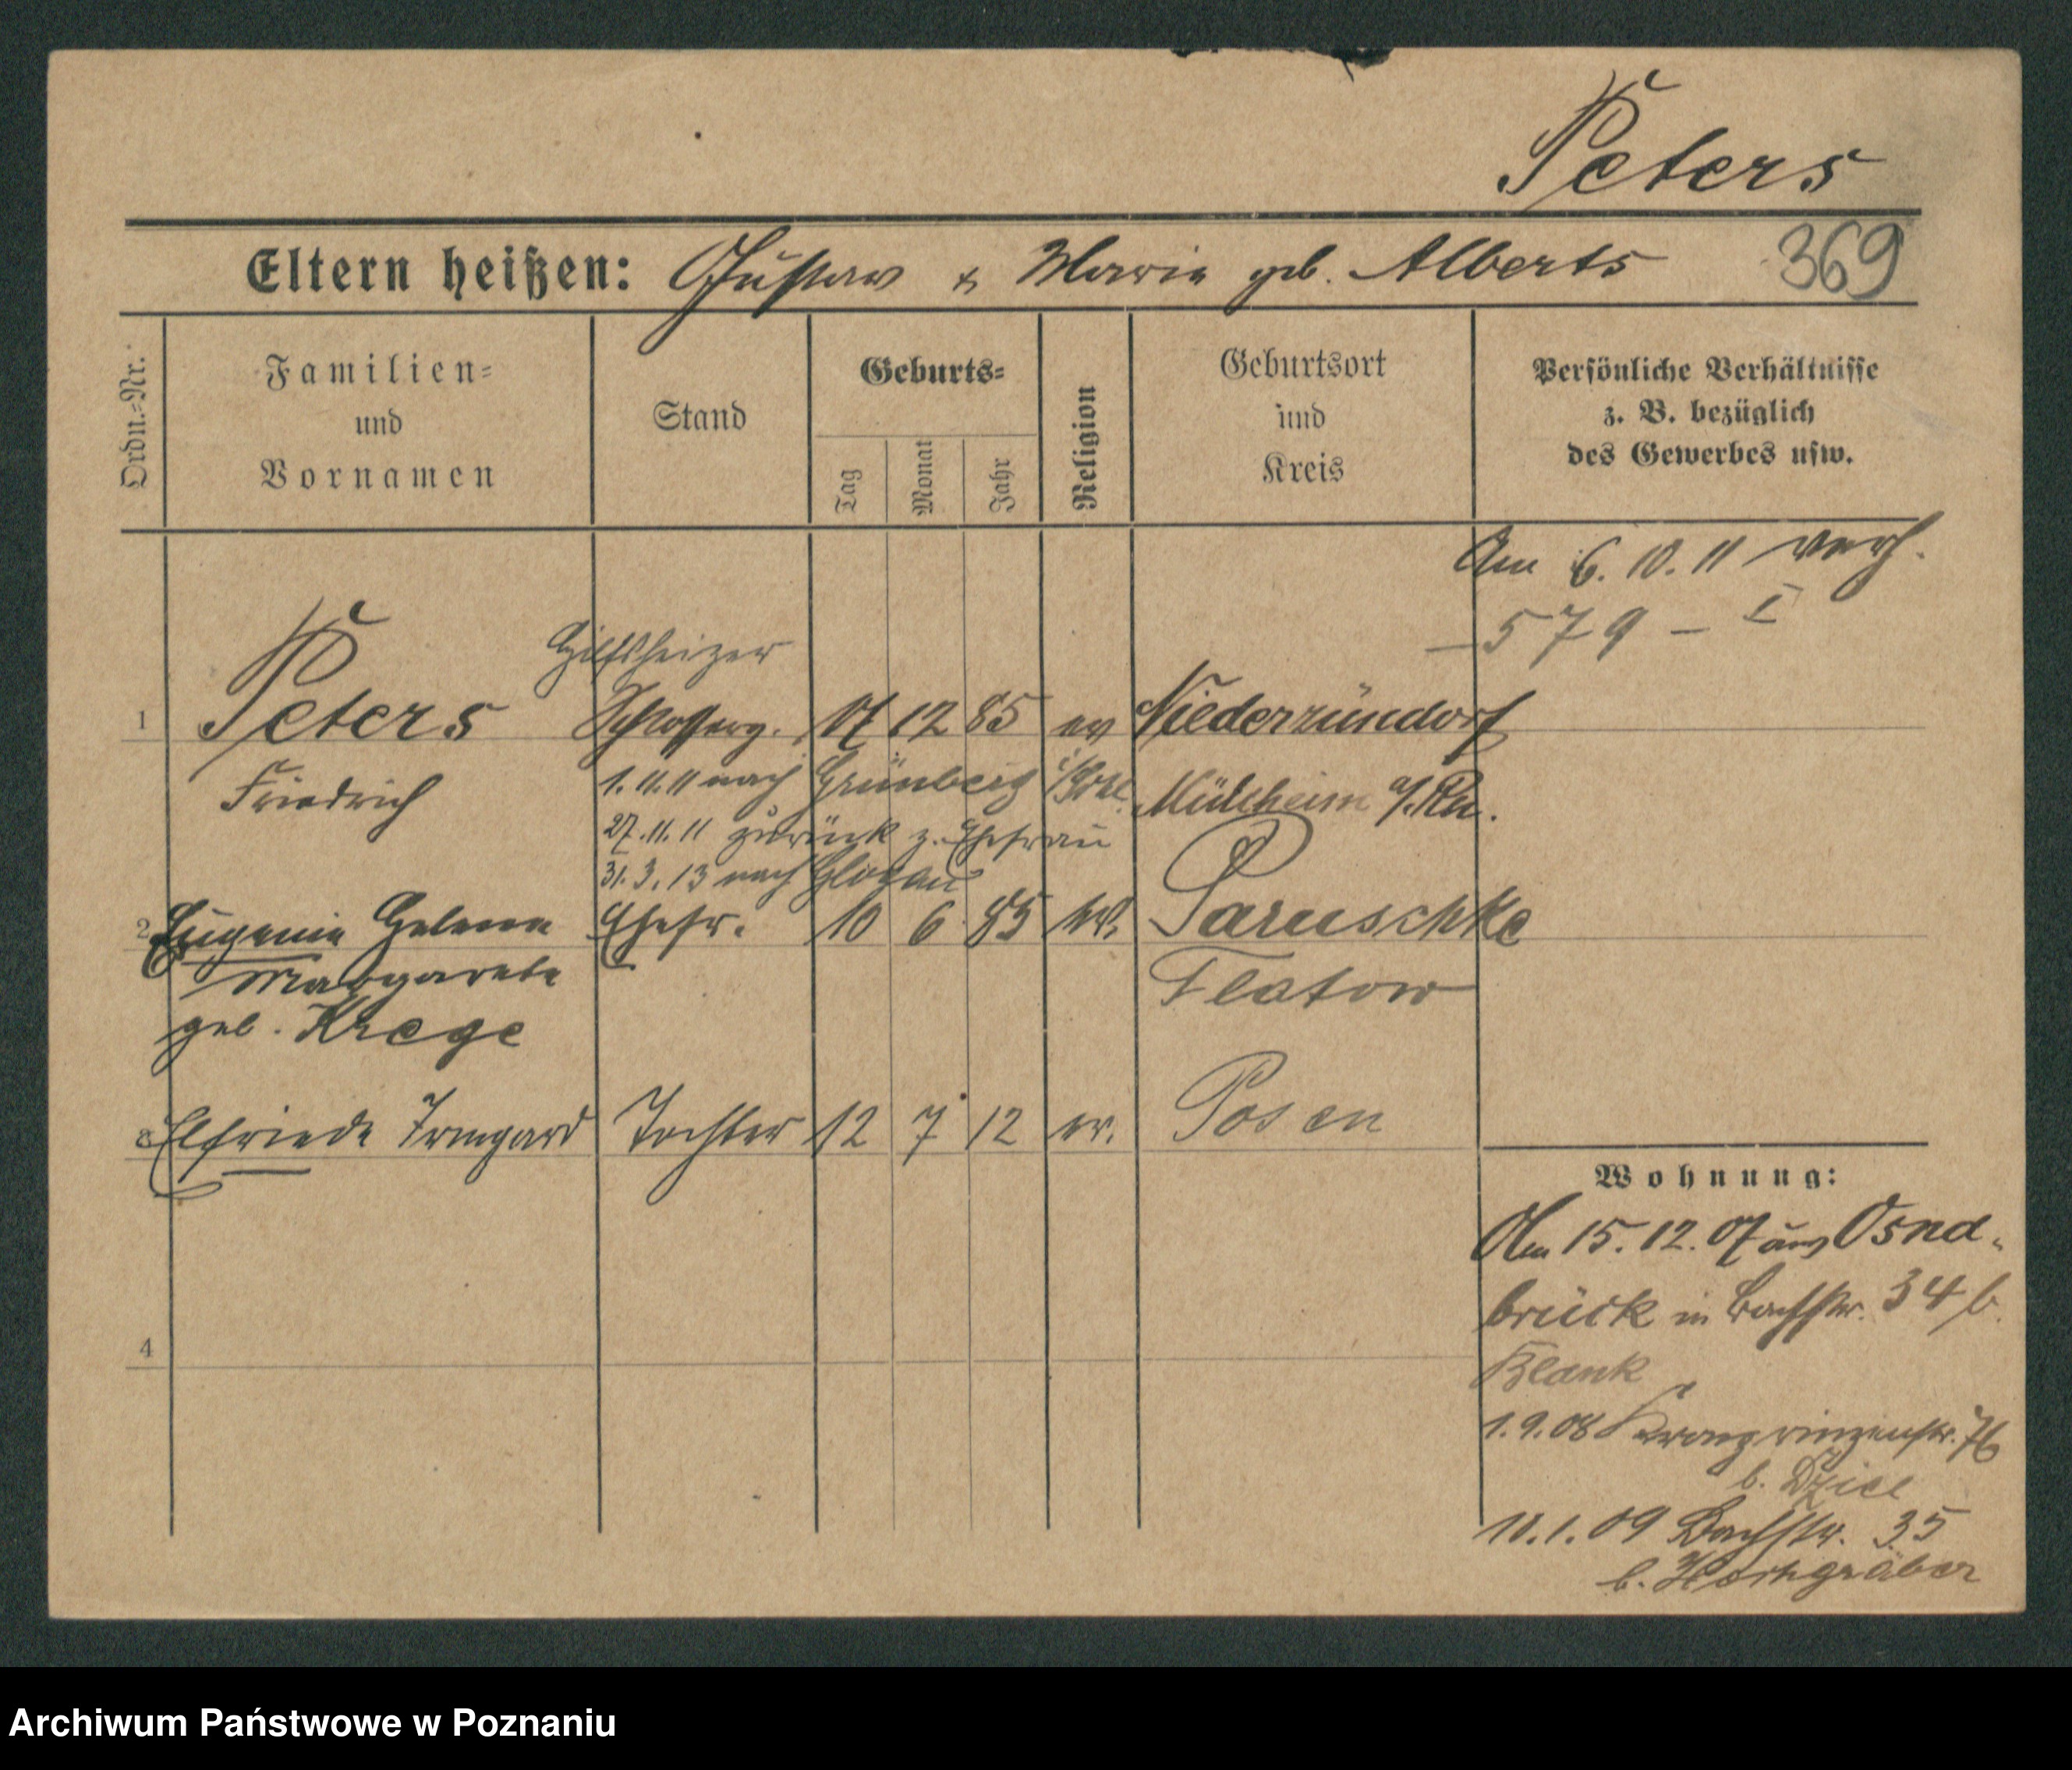 Peters
Eltern heißen: Gustav & Marie geb. Alberts 369
Ordn.-Nr.
Familien-
und
Vornamen
Stand
Geburts-
Tag
Monat
Jahr
Religion
Geburtsort
und
Kreis
Persönliche Verhältnisse
z. B. bezüglich
des Gewerbes usw.
Am 6. 10. 11 verh.
— 579 — I
Hilfsheizer
1 Peters Schlosserg. 12 85 ev Niederzündorf
Friedrich 1. 11. 11 nach Grünberg i/Schl. Mülheim a/Rh.
27. 11. 11 zurück z. Ehefrau
31. 3. 13 nach Glogau
2 Eugenie Helene Ehefr. 10 6 85 Paruschke
Margarete Flatow
geb. Krege
3 Elfriede Irmgard Tochter 12 7 12 ev. Posen
Wohnung:
Am 15. 12. 07 aus Osna-
brück in Bachstr. 34 b.
Blank
1. 9. 08 Kronprinzenstr. 76
b. Dziel
10. 1. 09 Bachstr. 35
b. Hochgräber
4
Archiwum Państwowe w Poznaniu